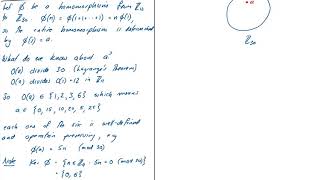 Let ϕ be a homomorphism from ℤ₁₂
to ℤ₃₀. ϕ(n) = ϕ(1+1+···+1) = nϕ(1),
so the entire homomorphism is determined
by ϕ(1) = a.
What do we know about a?
O(a) divides 30 (Lagrange's Theorem)
O(a) divides O(1) = 12 in ℤ₁₂
So O(a) ∈ {1, 2, 3, 6} which means
a ∈ {0, 15, 10, 20, 5, 25}
each one of the six is well-defined
and operation preserving, e.g.
ϕ(n) = 5n (mod 30)
Note Ker ϕ = {n ∈ ℤ₁₂ : 5n = 0 (mod 30)}
= {0, 6}
a
ℤ₃₀